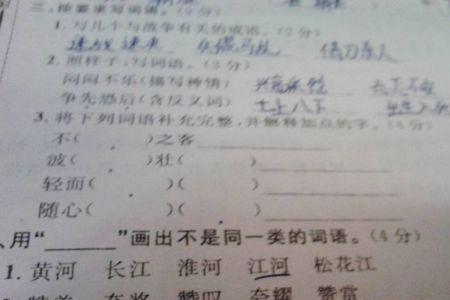 三、按要求写词语。(9分)
1. 写几个与战争有关的成语。(2分)
速战速决 兵荒马乱 借刀杀人
2. 照样子,写词语。(3分)
闷闷不乐(描写神情)
争先恐后(含反义词) 七上八下
3. 将下列词语补充完整,并解释加点的字。(4分)
不( )之客
波( )壮( )
轻而( )( )
随心( )( )
、用“ ”画出不是同一类的词语。(4分)
1. 黄河 长江 淮河 江河 松花江
赞叹 夸耀 赞赏